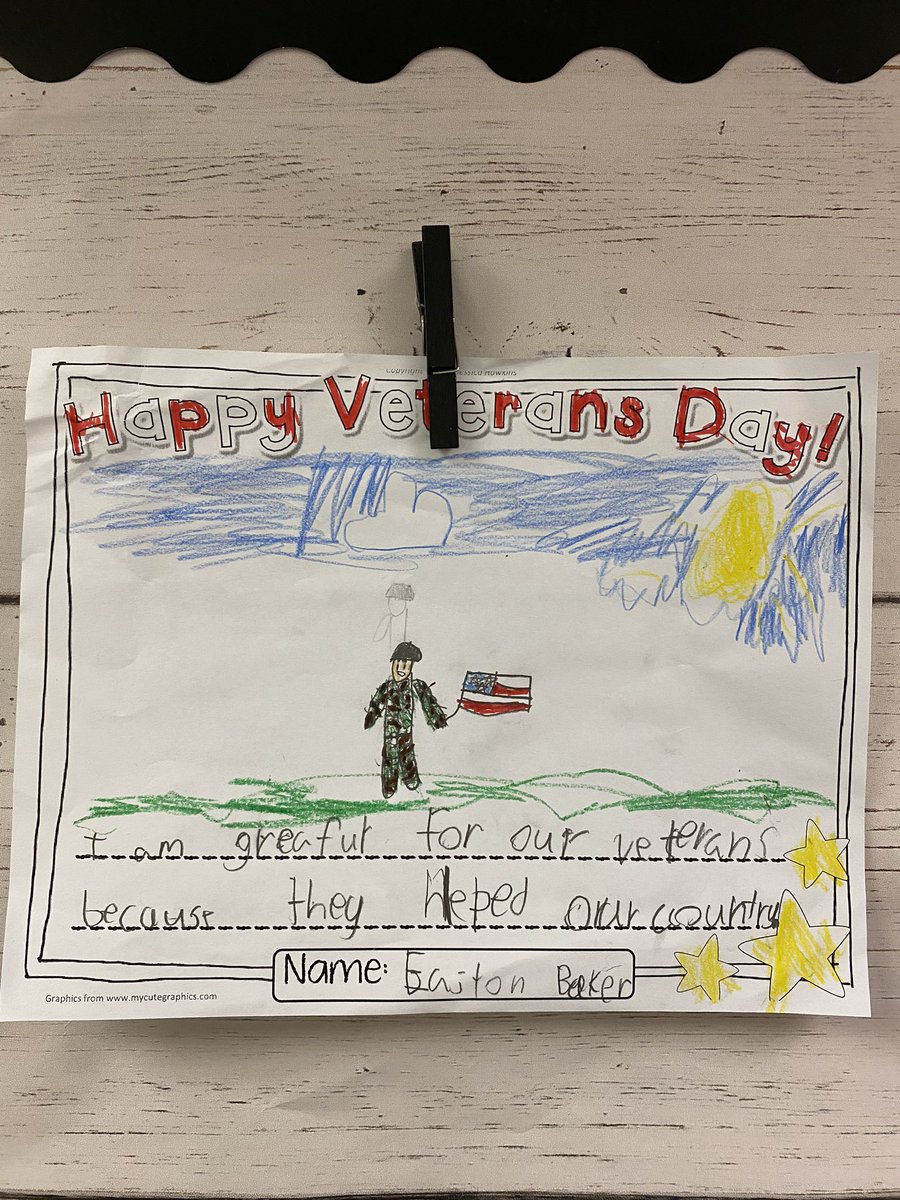 Copyright Jessica Hawkins
Happy Veterans Day!
I am greaful for our veterans
because they Heped our country
Name: Easton Baker
Graphics from www.mycutegraphics.com